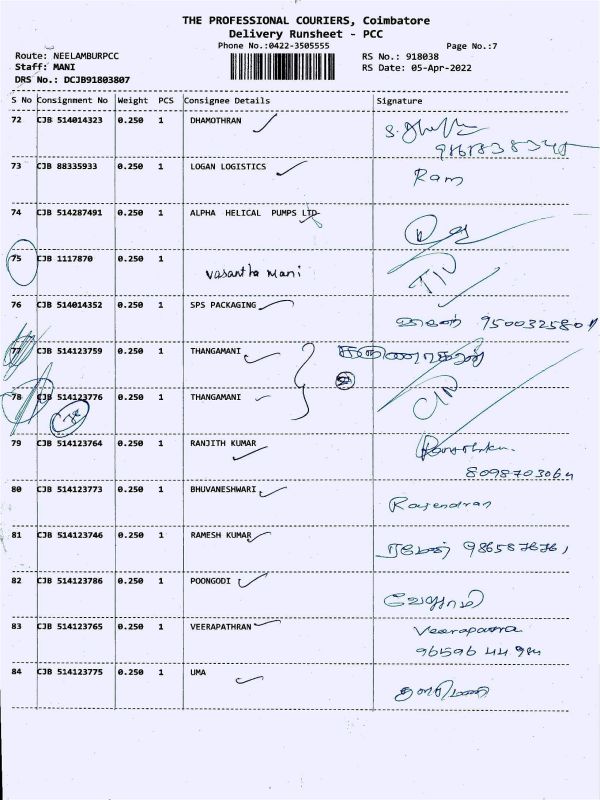 THE PROFESSIONAL COURIERS, Coimbatore
Delivery Runsheet - PCC
Phone No.:0422-3505555 Page No.:7
Route: NEELAMBURPCC RS No.: 918038
Staff: MANI RS Date: 05-Apr-2022
DRS No.: DCJB91803807
S No Consignment No Weight PCS Consignee Details Signature
72 CJB 514014323 0.250 1 DHAMOTHRAN
73 CJB 88335933 0.250 1 LOGAN LOGISTICS Ram
74 CJB 514287491 0.250 1 ALPHA HELICAL PUMPS LTD
75 CJB 1117870 0.250 1
Vasantha Mani
76 CJB 514014352 0.250 1 SPS PACKAGING
77 CJB 514123759 0.250 1 THANGAMANI
78 CJB 514123776 0.250 1 THANGAMANI
79 CJB 514123764 0.250 1 RANJITH KUMAR
8098703064
80 CJB 514123773 0.250 1 BHUVANESHWARI
Rajendran
81 CJB 514123746 0.250 1 RAMESH KUMAR
ரமேஷ்
82 CJB 514123786 0.250 1 POONGODI
83 CJB 514123765 0.250 1 VEERAPATHRAN Veerapatra
84 CJB 514123775 0.250 1 UMA